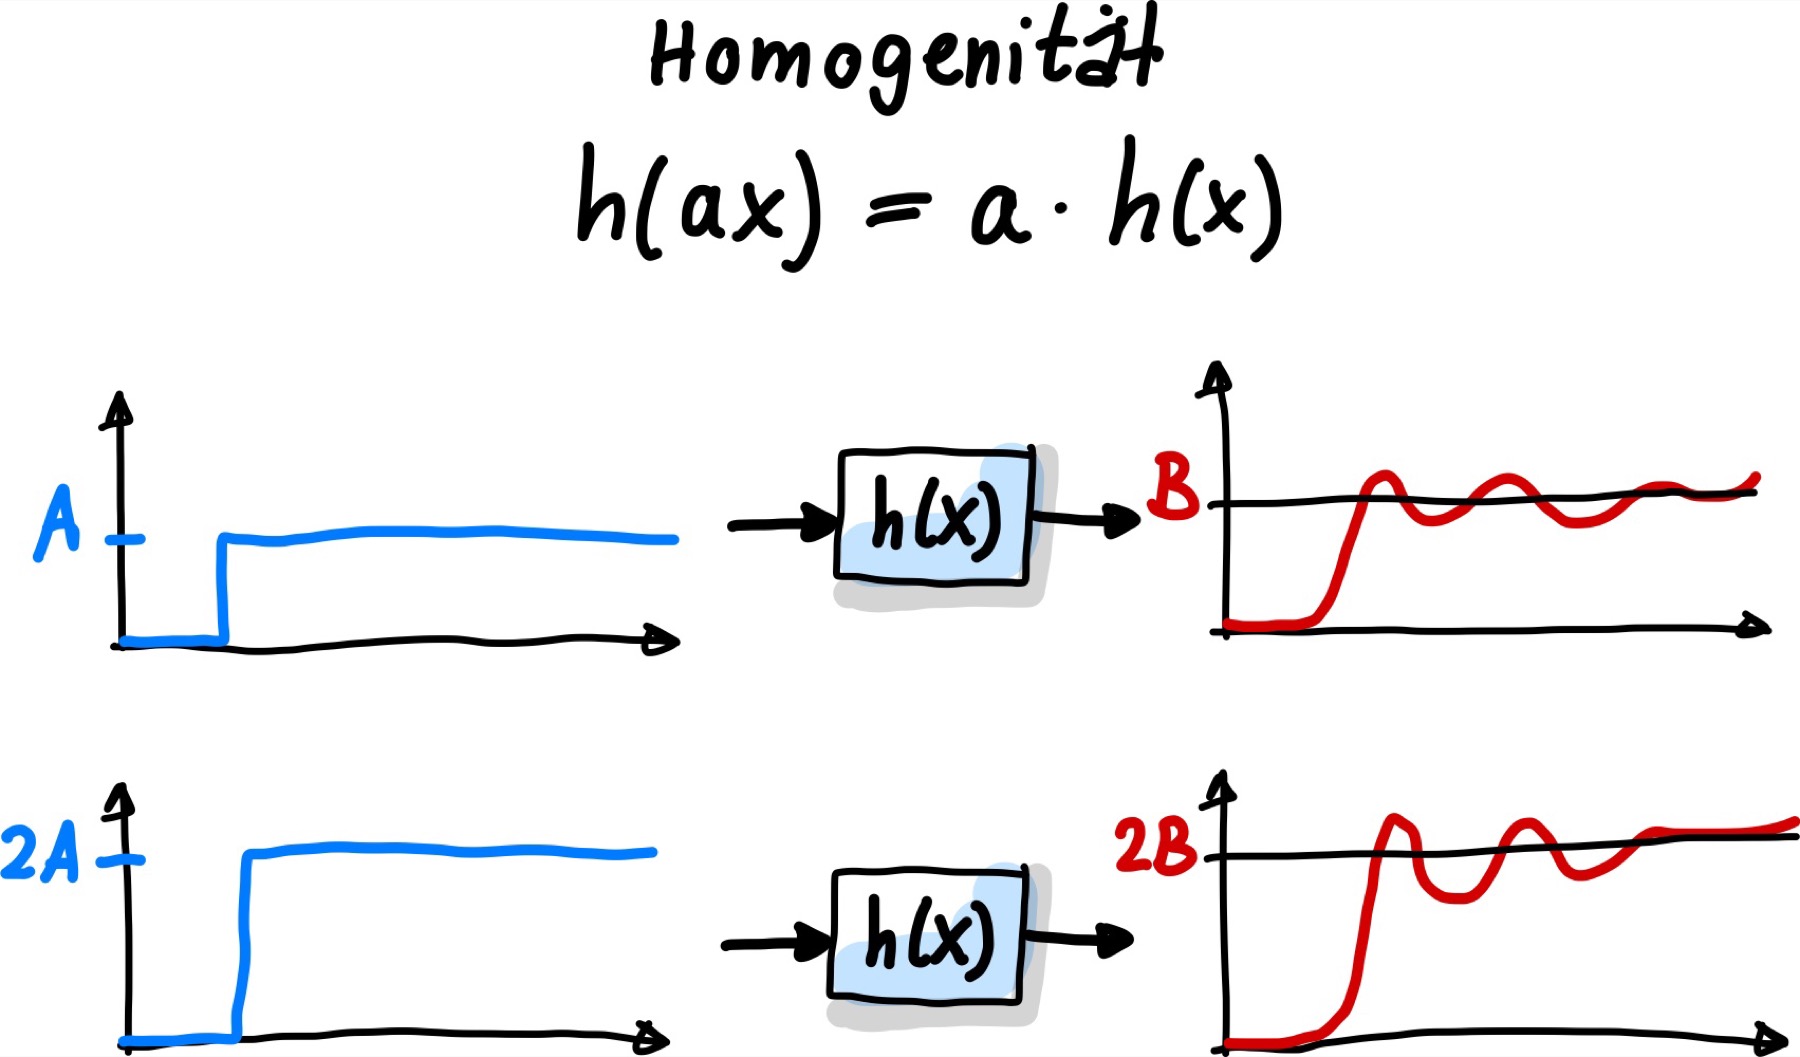 Homogenität
h(ax) = a · h(x)
A
h(x)
B
2A
h(x)
2B